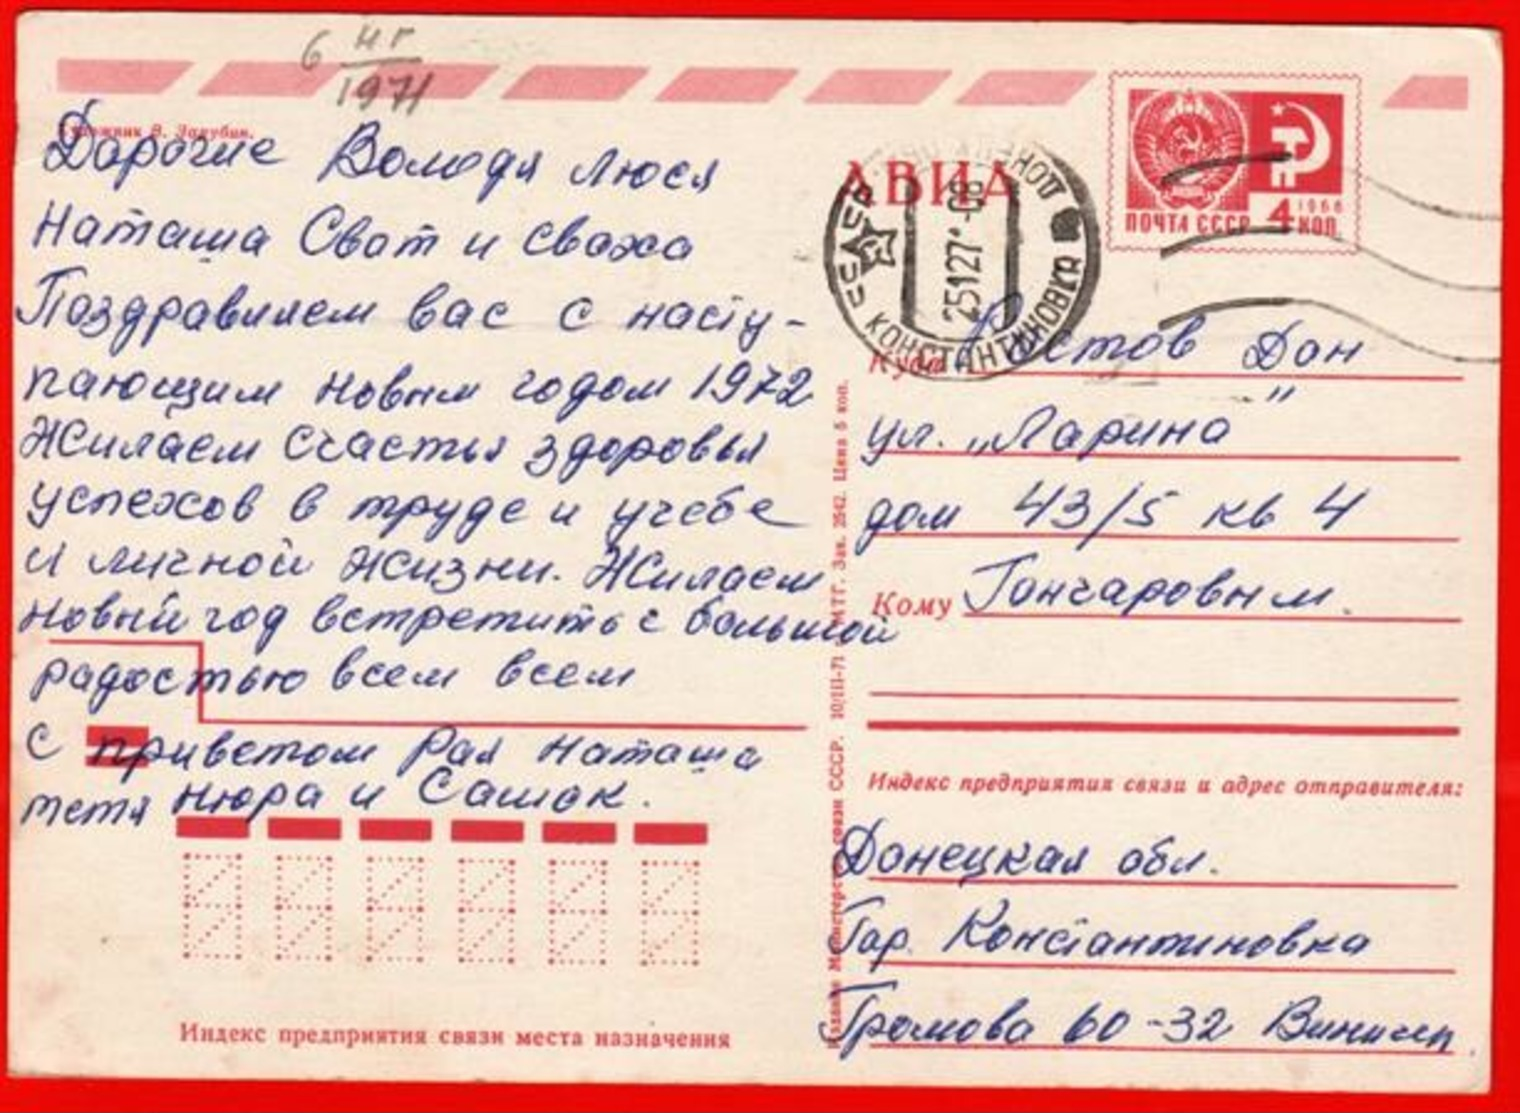 6 нг
1971
Художник В. Зарубин.
Дорогие Володя Люся
Наташа Сват и сваха
Поздравляем вас с насту-
пающим новым годом 1972
Жилаем счастья здоровья
успехов в труде и учебе
и личной жизни. Жилаем
новый год встретить с большой
радостью всем всем
с приветом Рая Наташа
тетя Нюра и Сашок.
Индекс предприятия связи места назначения
АВИА
КОНСТАНТИНОВКА ДОНЕЦК
251271-08
ПОЧТА СССР 4 КОП
1966
Куда Ростов Дон
ул. „Ларина"
дом 43/5 кв 4
Кому Гончаровым.
Индекс предприятия связи и адрес отправителя:
Донецкая обл.
Гор. Константиновка
Громова 60-32
Издание Министерства связи СССР. 10/III-71 г. МТГ. Зак. 2542. Цена 5 коп.